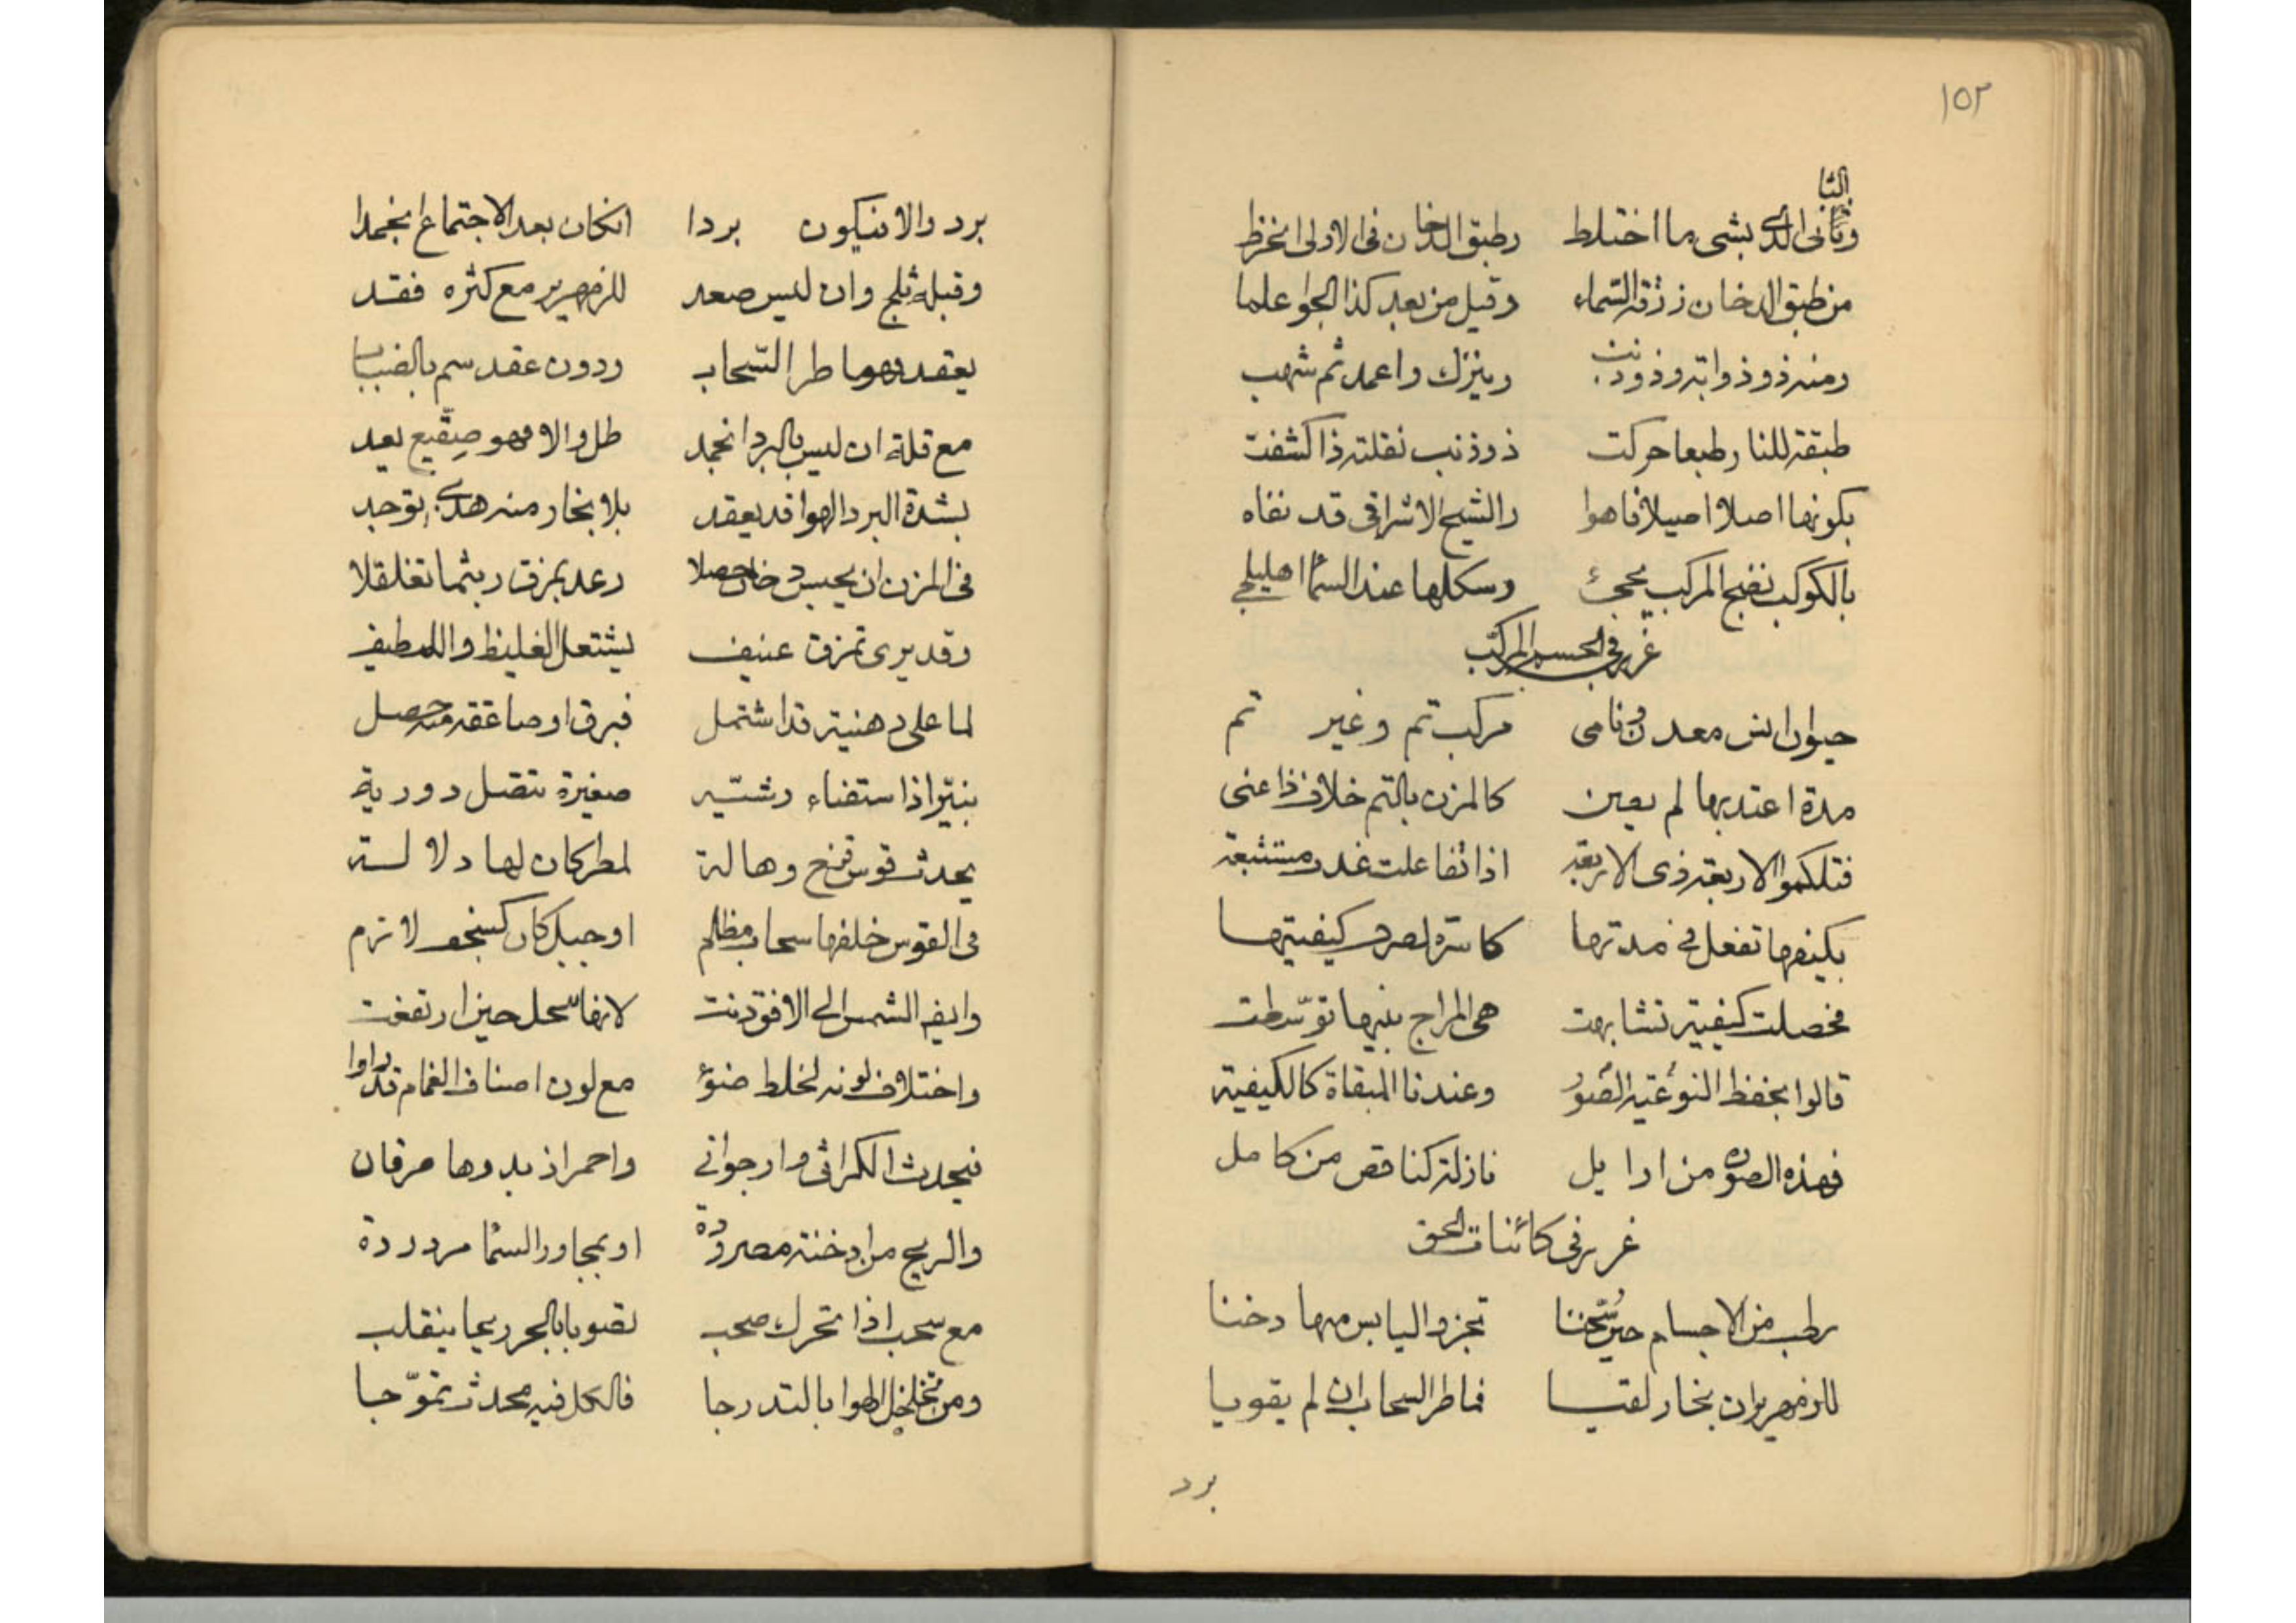 ١٥٢
الثا
وثانى الذى بشى ما اختلط رطبق الدخان فى الاولى انخرط
من طبق الدخان زرقة السماء وقيل من بعد كذا الجوا علما
ومنه ذو ذوابة وذو ذنب ونيزك واعمد ثم شهب
طبقة للنار طبعا حركت ذو ذنب نقلته ذا كشفت
بكونها اصلا اصيلا فاهوا والشيخ الاشراقى قد نفاه
بالكوكب نضج المركب يجئ وسكلها عند السما اهليلجى
غرر فى الجسم المركب
حيوان انس معدن ونامى مركب تم وغير تم
مدة اعتد بها لم يعين كالمزن بالتم خلاف ذا عنى
فتلكموا الاربعة ذى الاربعة اذا تفاعلت غدت مستتبعة
بكيفها تفعل فى مدتها كاسرة لصرف كيفيتها
فحصلت كيفية تشابهت هى المزاج بينها توسّطت
قالوا بحفظ النوعية الصور وعندنا المبقاة كالكيفية
فهذه الصورة من اوايل نازلة كناقص من كامل
غرر فى كائنات الجو
رطب من الاجسام حين سُخنا تجز واليابس منها دخنا
للزمهرير ان بخار لقيا فماطر السحاب ان لم يقويا
برد
برد والا فيكون بردا انكان بعد الاجتماع انجمدا
وقبله ثلج وان ليس صعد للزمهرير مع كثره فقد
يعقد وهو ماطر السّحاب ودون عقد سم بالضباب
مع قلة ان ليس بالبرد انجمد طل والا فهو صقيع يعد
بشدة البرد الهوا قد يعقد بلا بخار منه هذى توجد
فى المزن ان يحبس دخان حصلا رعد بمزق ريثما تغلغلا
وقد يرى تمزق عنيف يشتعل الغليظ واللطيف
لما على دهنية قد اشتمل فبرق او صاعقة منه حصل
بنيّر اذا استضاء رشيّه صغيرة تتصل دورية
يحدث قوس قزح وهالة لمطر كان لها دلالة
فى القوس خلفها سحاب مظلم او جبل كان كسنجف لازم
وايضه الشمس الى الافق دنت لانها تنحل حين ارتفعت
واختلاف لونه لخلط ضوء مع لون اصناف الغمام قد راوا
فيحدث الكراثى وارجوانى واحمر اذ بدوها مرقان
والريح من ادخنة مصرودة او بمجاور السما مردودة
مع سحب اذا تحرك صحب تصوبا بالحر ريحا ينقلب
ومن تخلخل الهوا بالتدرجا فالكل فيه محدث تموّجا